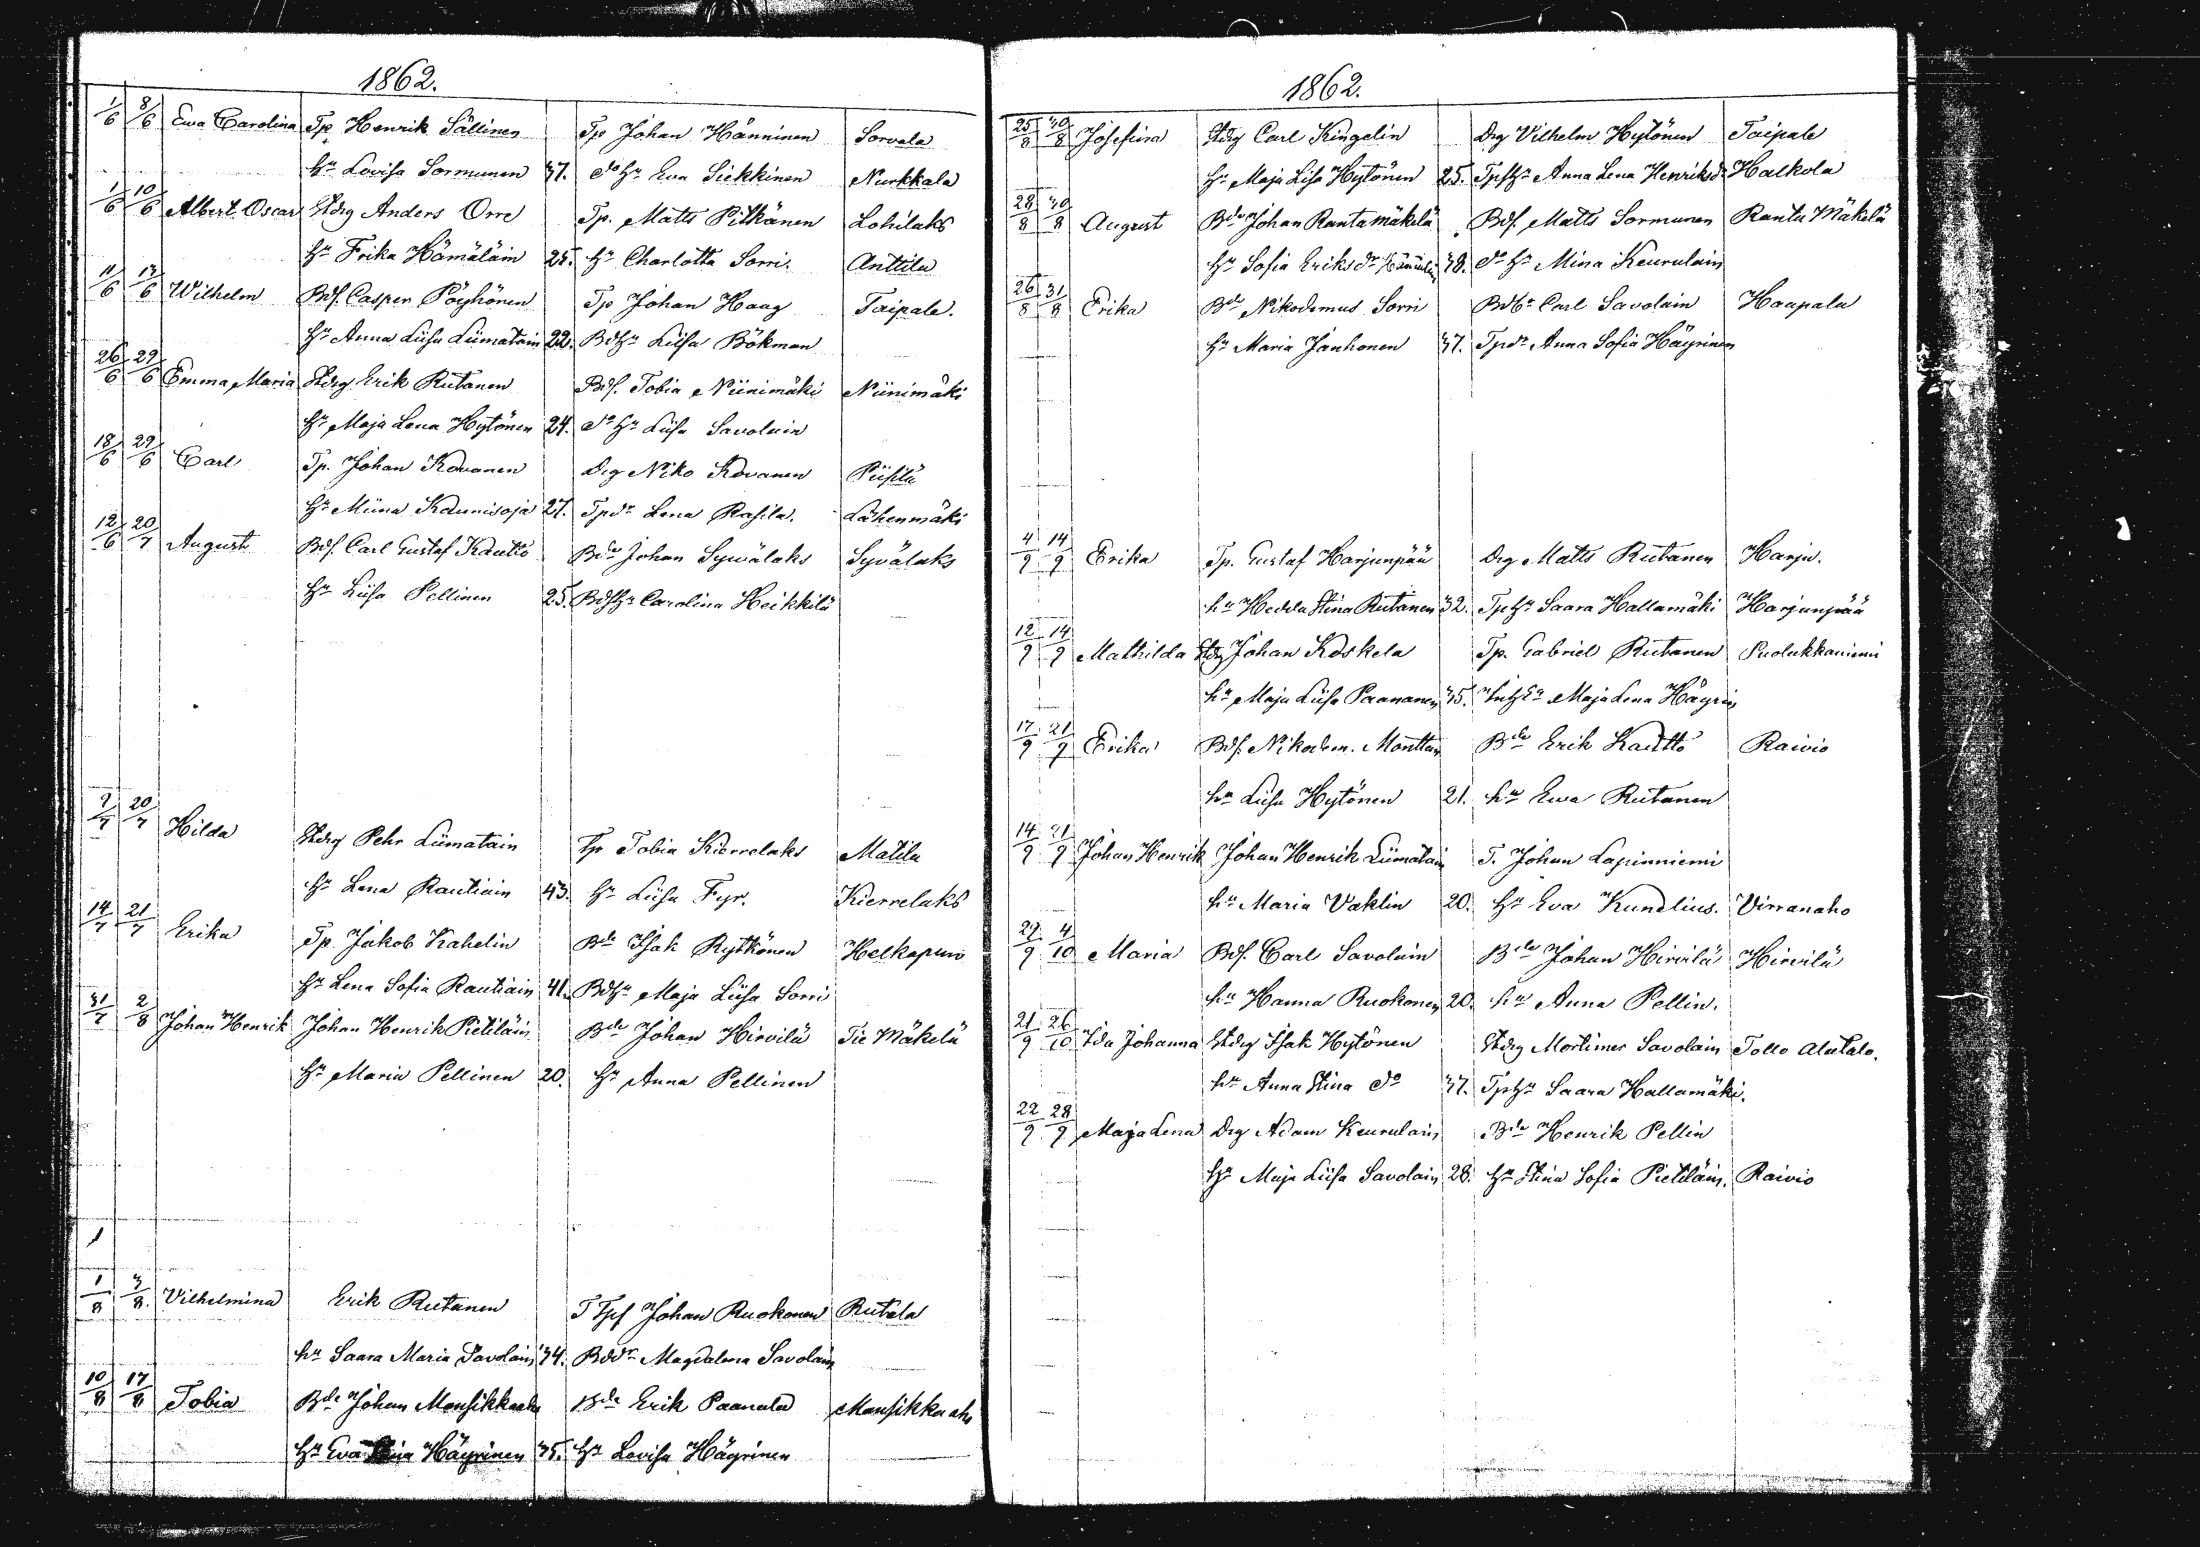 1862.
1/6 8/6 Ewa Carolina Tp Henrik Sällinen Tp Johan Hänninen Sorvala
Hu Lovisa Sormunen 37. do Hu Eva Siekkinen Nurkkala
1/6 10/6 Albert Oscar Stdrg Anders Orre Tp. Matts Pitkänen Lohilaks
Hu Frika Hämäläin 25. Hu Charlotta Sorri. Anttila
11/6 17/6 Wilhelm Bdf. Casper Pöyhönen Tp Johan Haag Taipale.
Hu Anna Liisa Liimatain 22. BdHu Liisa Bökman
26/6 29/6 Emma Maria Stdrg Erik Rutanen Bdf. Tobia Niinimäki Niinimäki
Hu Maja Lena Hytönen 24. do Hu Liisa Savolain
18/6 29/6 Carl Tp. Johan Kovanen Drg Niko Kovanen Piisilä
Hu Miina Kaunisoja 27. Tpdr Lena Rasila. Lähenmäki
12/6 20/7 August Bdf. Carl Gustaf Kautto Bde Johan Sywälaks Syvälaks
Hu Liisa Pellinen 25. BdfHu Carolina Heikkilä
9/7 20/7 Hilda Stdrg Pehr Liimatain Tp Tobia Kierrelaks Matila
Hu Lena Rautiain 43. Hu Liisa Fyr. Kierrelaks
14/7 21/7 Erika Tp. Jakob Kahelin Bde Isak Rytkönen Helkapuro
Hu Lena Sofia Rautiain 41. BdHu Maja Liisa Sorri
31/7 2/8 Johan Henrik Johan Henrik Pietiläin Bde Johan Hirvilä Tie Mäkelä
Hu Maria Pellinen 20. Hu Anna Pellinen
1/8 3/8. Vilhelmina Erik Rutanen Johan Ruokonen Rutala
hu Saara Maria Savolain 34. Bddr Magdalena Savolain
10/8 17/8 Tobia Bde Johan Mansikkaaho Bde Erik Paanala Mansikka aho
Hu Eva Stina Häyrinen 35. Hu Lovisa Häyrinen
1862.
25/8 30/8 Josefiina Stdrg Carl Kingelin Drg Vilhelm Hytönen Taipale
Hu Maja Lisa Hytönen 25. TpfHu Anna Lena Henriksdr Halkola
28/8 30/8 August Bde Johan Rantamäkelä Bdf. Matts Sormunen Ranta Mäkelä
Hu Sofia Eriksdr 38. do Hu Mina Keurulain
26/8 31/8 Erika Bde Nikodemus Sorri Carl Savolain Haapala
Hu Maria Janhonen 37. Tpdr Anna Sofia Häyrinen
4/9 14/9 Erika Tp. Gustaf Harjunpää Drg Matts Rutanen Harju.
hu Hedda Stina Rutanen 32. TpHu Saara Hallamäki Harjunpää
12/9 14/9 Mathilda Stdrg Johan Koskela Tp. Gabriel Rutanen Puolukkaniemi
hu Maja Liisa Paananen 35. Maja Lena Häyrin
17/9 21/9 Erika Bdf. Nikodem. Monttin Bde Erik Kautto Raivio
hu Liisa Hytönen 21. hu Ewa Rutanen
14/9 21/9 Johan Henrik Johan Henrik Liimatain T. Johan Lapinniemi
hu Maria Vaklin 20. Hu Eva Kunelius. Virranaho
29/9 4/10 Maria Bdf. Carl Savolain Bde Johan Hirvilä Hirvilä
hu Hanna Ruokonen 20. hu Anna Pellin.
21/9 26/10 Ida Johanna Stdrg Isak Hytönen Stdrg Mortimer Savolain Tollo Alatalo.
hu Anna Stina do 37. TpHu Saara Hallamäki.
22/9 28/9 Maja Lena Drg Adam Keurulain Bde Henrik Pellin
Hu Maja Liisa Savolain 28. Hu Stina Sofia Pietiläin. Raivio